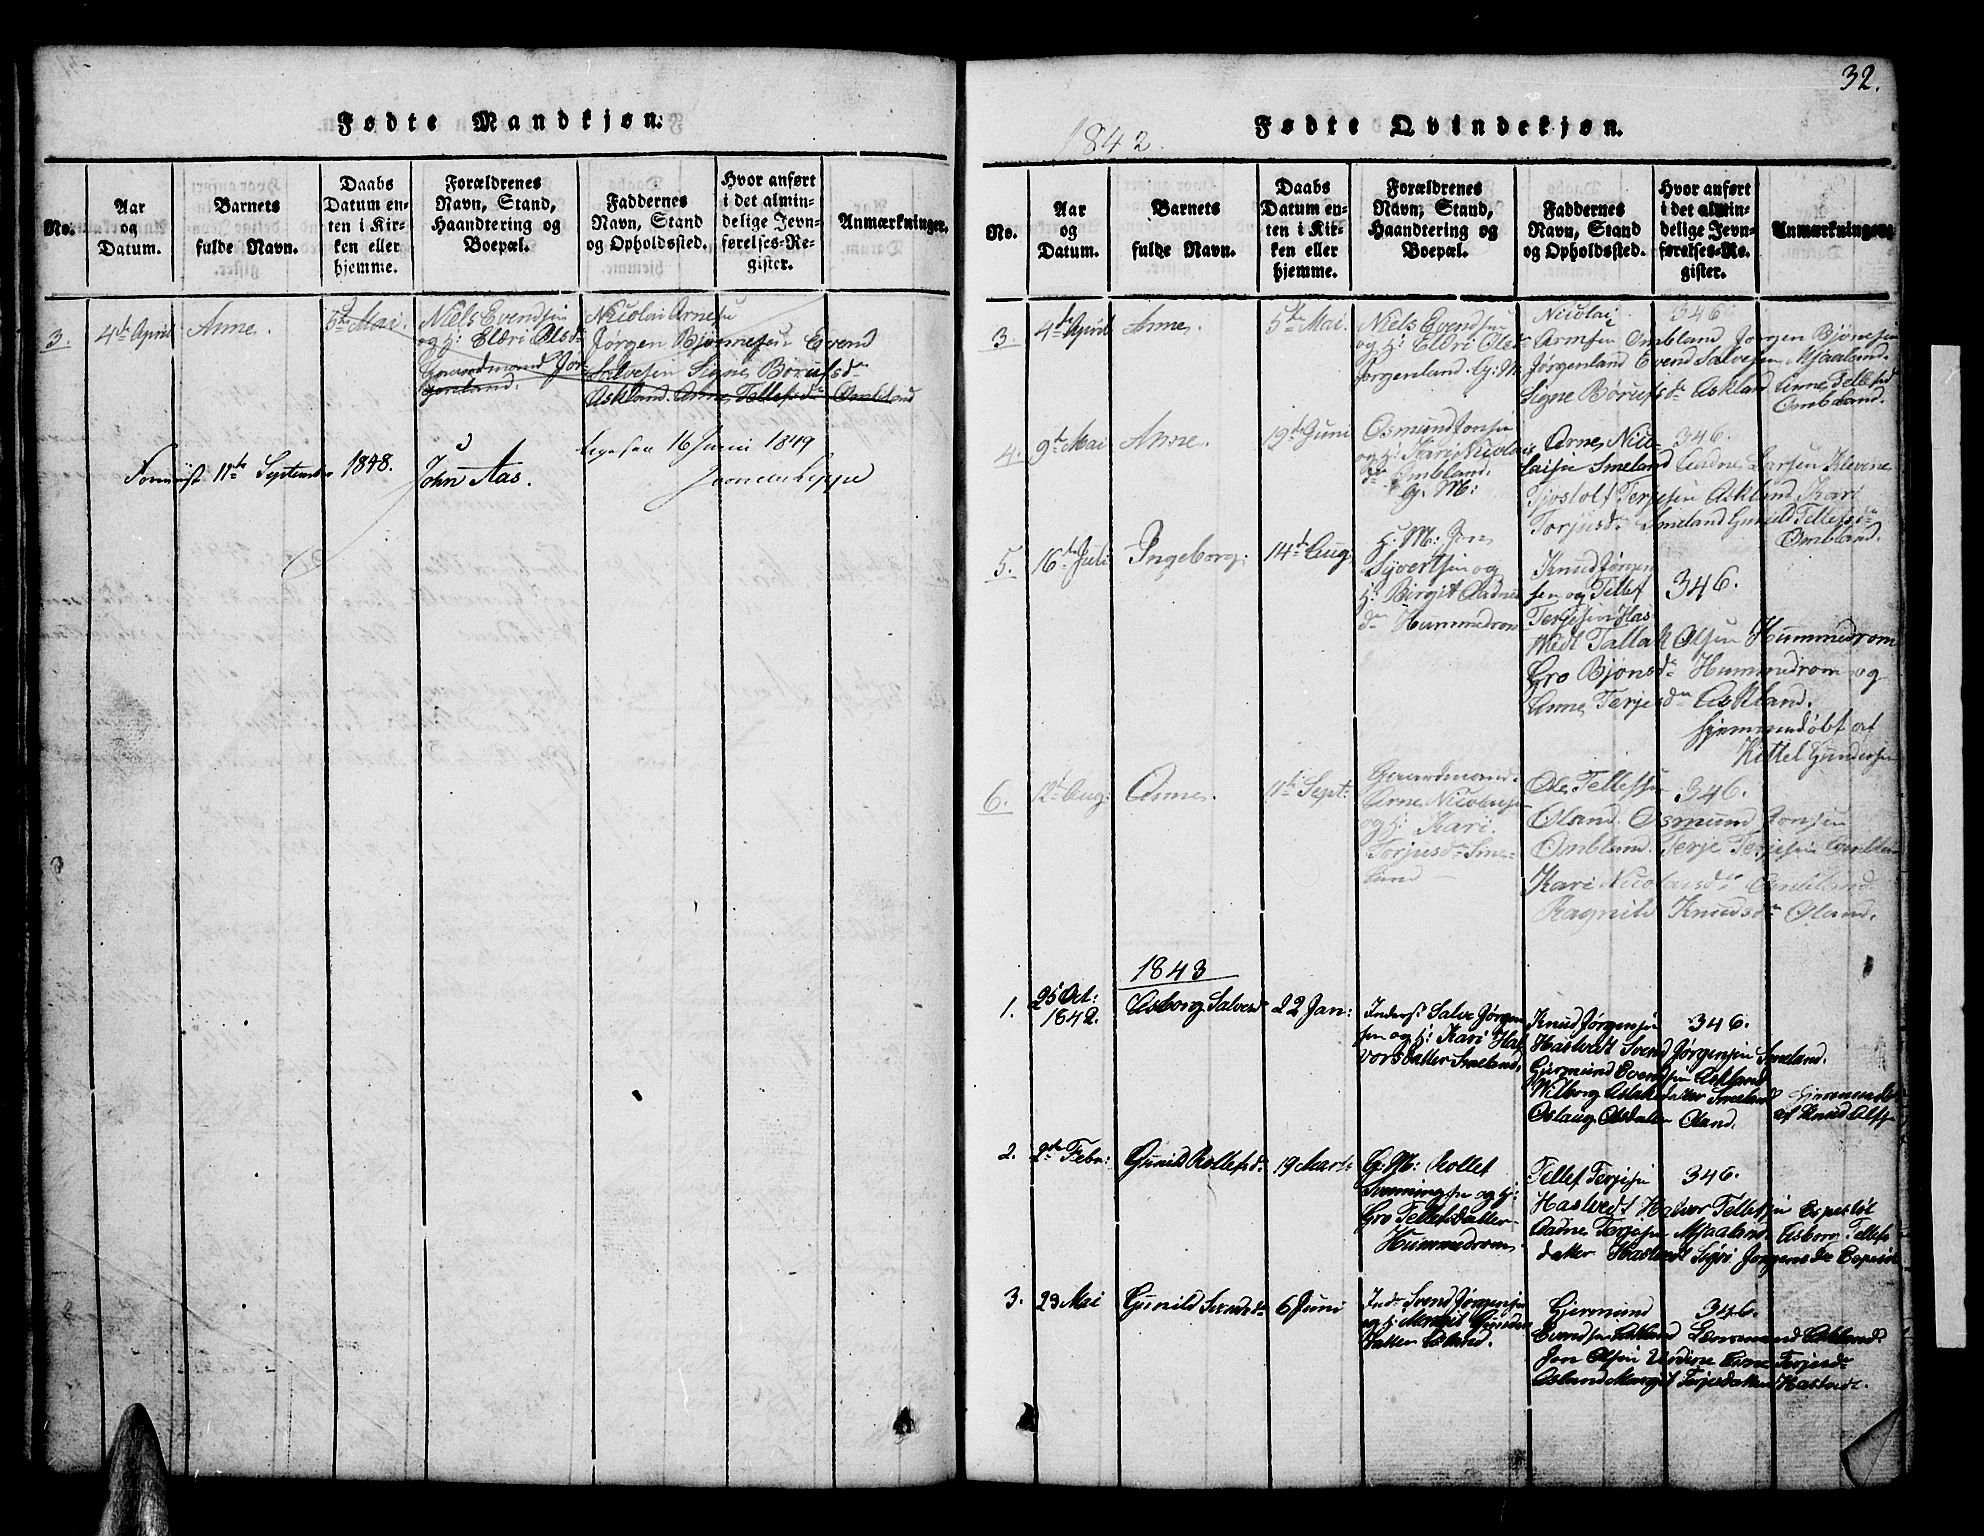 Fødte Mandkjøn.
No.
Aar
og
Datum.
Barnets
fulde Navn.
Daabs
Datum en-
ten i Kir-
ken eller
hjemme.
Forældrenes
Navn, Stand,
Haandtering og
Boepæl.
Faddernes
Navn, Stand
og Opholdssted.
Hvor anført
i det almin-
delige Jevn-
førelses-Re-
gister.
Anmærkninger.
3. 4de April Anne. 5te Mai.
Niels Evendsen
og H: Eldri Olsdr
Gaardmand Jør-
genland.
Nicolai Arnesen
Jørgen Bjønnesen Evend
Salvesen Signe Børufsdr
Askland. Anne Tellefsdr Ombland
11te September 1848. John Aas.
16 Juni 1849
32.
1842.
Fødte Qvindekjøn.
No.
Aar
og
Datum.
Barnets
fulde Navn.
Daabs
Datum en-
ten i Kir-
ken eller
hjemme.
Forældrenes
Navn, Stand,
Haandtering og
Boepæl.
Faddernes
Navn, Stand
og Opholdssted.
Hvor anført
i det almin-
delige Jevn-
førelses-Re-
gister.
Anmærkninger
3. 4de April Anne. 5te Mai.
Niels Evendsen
og H: Eldri Olsdr
Jørgenland. G: M:
Nicolai 346
Arnesen Ombland Jørgen Bjønsen
Jørgenland Evend Salvesen Mjaaland.
Signe Børufsdr Askland Anne Tellefsd
Ombland.
4. 9de Mai Anne. 19de Juni
Osmund Jonsen
og H: Kari Nicolais
dr Ombland.
G: M:
Arne Nico- 346.
laisen Smeland Aadne Larsen Klevene
Tjostolf Terjesen Askland Kari
Torjusdr Smeland Gunild Tellefsdr
Ombland.
5. 16de Juli Ingeborg. 14de Aug
G: M: Jon
Syvertsen og
H: Birgit Aadne
dr Hummedrom
Knud Jørgen
sen og Tellef 346.
Terjesen Has
tvedt Tallak Olsen Hummedrom
Gro Bjonsdr Hummedrom og
Anne Terjesdr Askland.
hjemmedøbt af
Kittel Gundersen
6. 12te Aug: Anne. 11te Sept:
Gaardmand
Arne Nicolaisen
og H: Kari
Torjusdr Sme-
land
Ole Tellefsen 346.
Osland. Osmund Jonsen
Ombland. Terje Terjesen Ombland
Kari Nicolaisdr Ombland
Ragnild Knudsdr Osland.
1843
1. 25 Oct:
1842. Asborg Salvesdr 22 Jan:
Inderst Salve Jørgen
sen og H: Kari Hal
vorsdatter Smeland.
Knud Jørgensen 346.
Hastvedt Svend Jørgensen Smeland.
Gjermund Evendsen Askland
Wilborg Aslaksdatter Smeland
Aslaug Olsdatter Osland.
hjemmedøbt
af Knud Olsen
2. 2de Febr: Gunild Rollefsdr 19 Marts
G: M: Rollef
og H:
Gro Tellefsdatter
Hummedrom
Tellef Terjesen 346.
Hastvedt Halvor Tellefsen Espestøl
Aadne Terjesen Mjaaland Asborg Tellefs
datter Hastvedt Sigri Jørgensdr Espestøl
3. 23 Mai Gunild Svendsdr 6 Juni
Indr Svend Jørgensen
og H: Margit Gunders
datter Osland.
Gjermund 346.
Evendsen Askland Askland
Jon Olsen Anne Terjesdr
Osland Margit Terjesdatter Hastvedt.